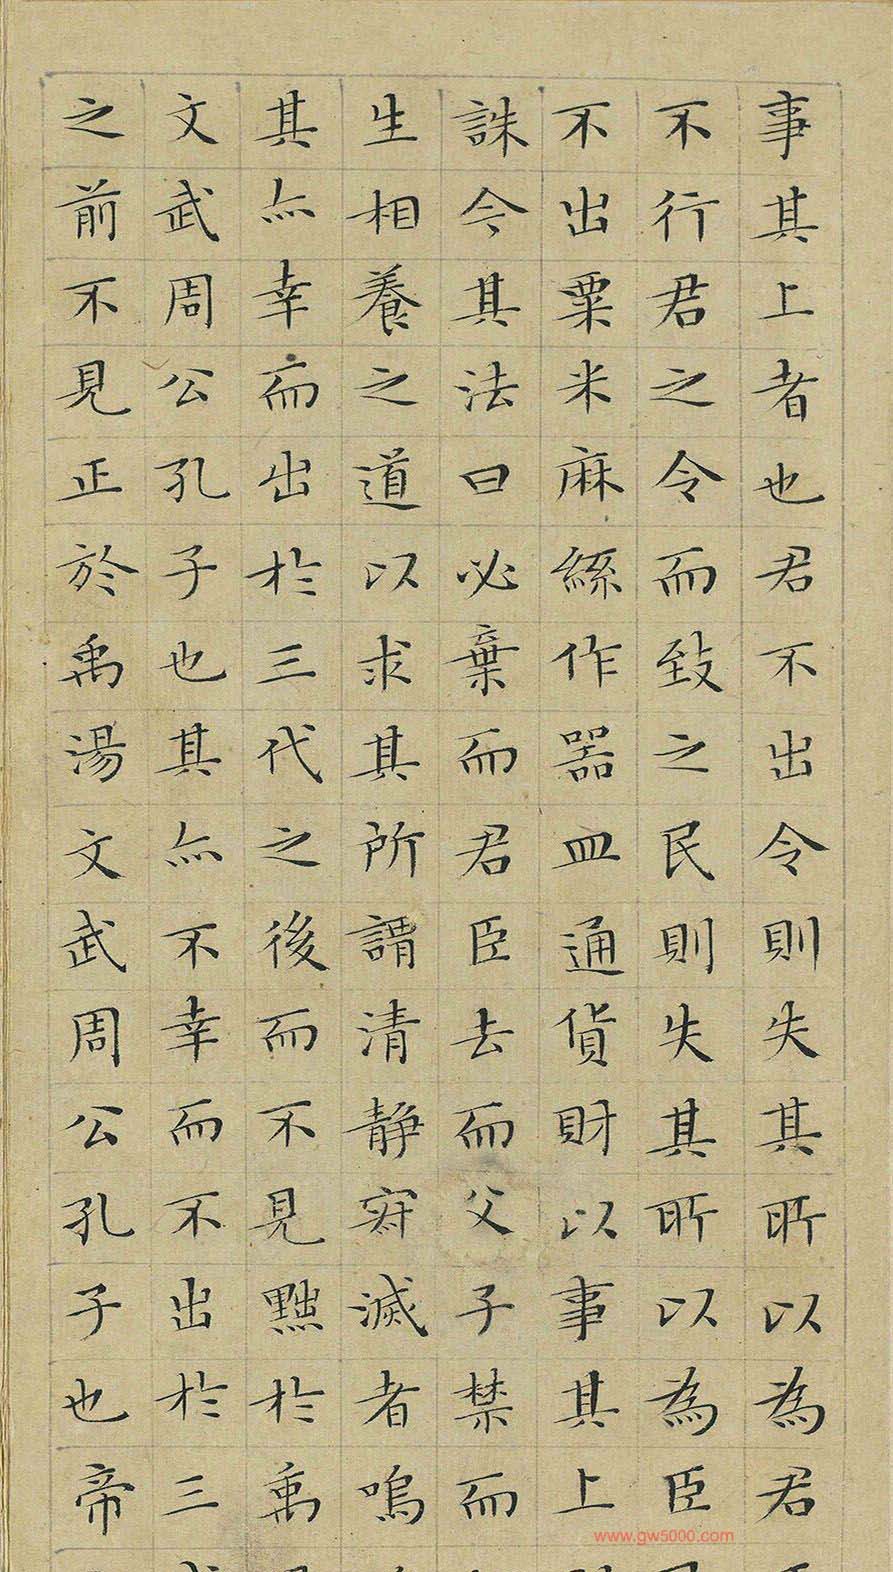 事其上者也君不出令則失其所以為君
不行君之令而致之民則失其所以為臣
不出粟米麻絲作器皿通貨財以事其上
誅今其法曰必棄而君臣去而父子禁而
生相養之道以求其所謂清静寂滅者嗚
其亦幸而出於三代之後而不見黜於禹
文武周公孔子也其亦不幸而不出於三
之前不見正於禹湯文武周公孔子也帝
www.gw5000.com